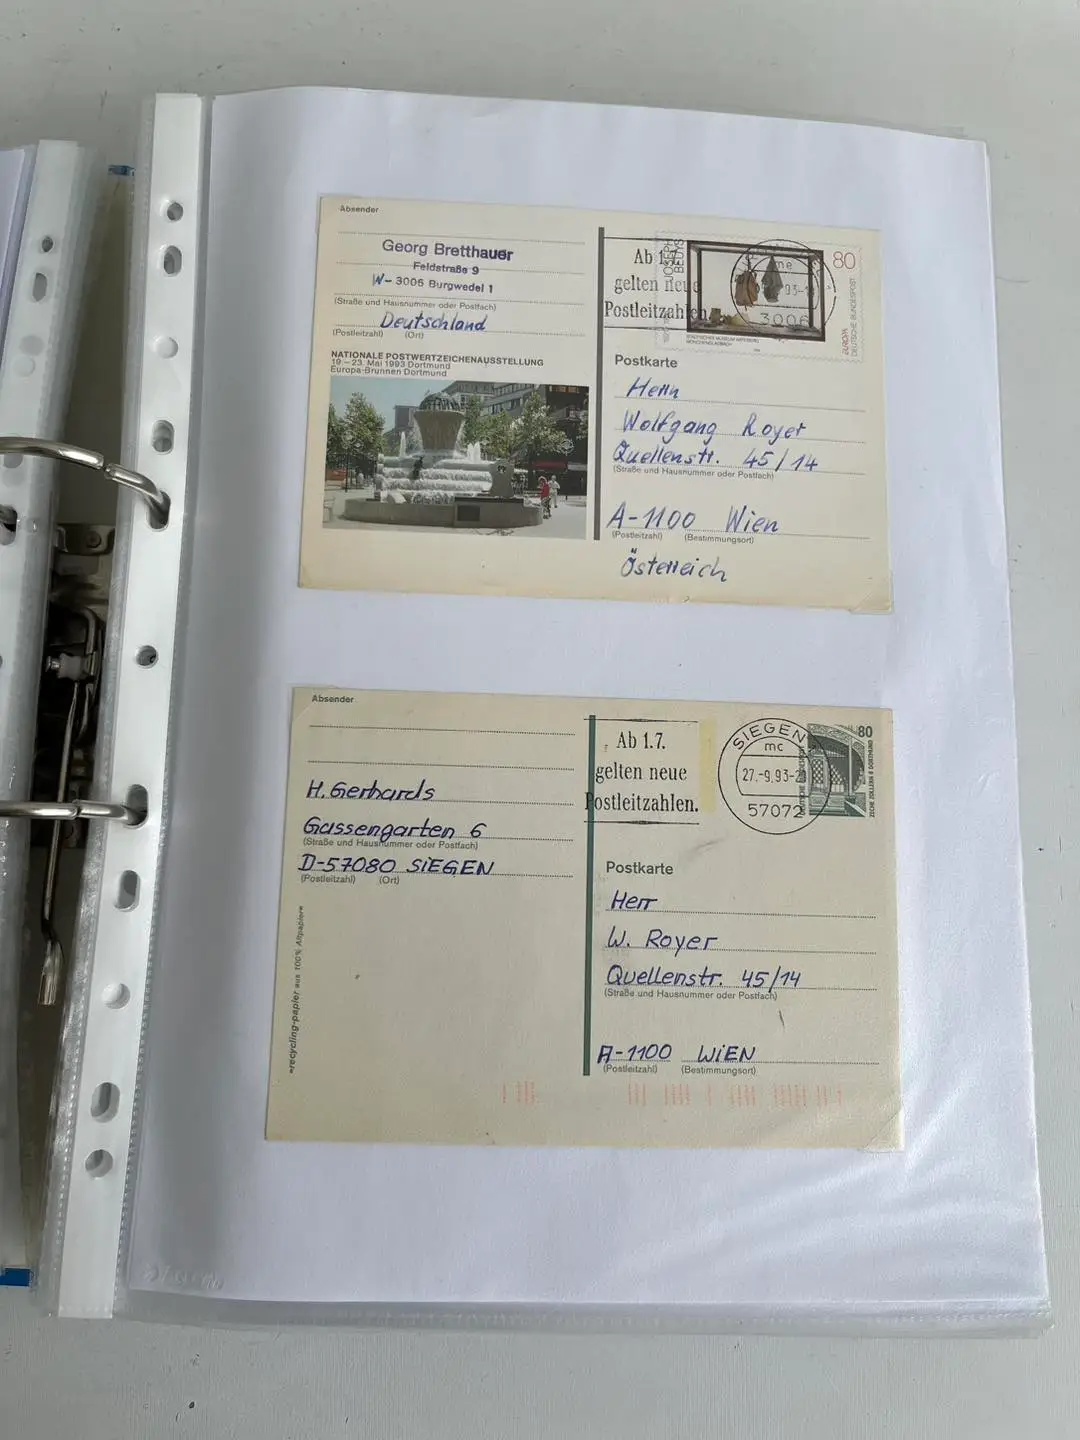 Absender
Georg Bretthauer
Feldstraße 9
W- 3006 Burgwedel 1
(Straße und Hausnummer oder Postfach)
Deutschland
(Postleitzahl) (Ort)
NATIONALE POSTWERTZEICHENAUSSTELLUNG
19.–23. Mai 1993 Dortmund
Europa-Brunnen Dortmund
Ab 1.
gelten neue
Postleitzahlen.
JOSEPH
BEUYS
me
3006
80
STÄDTISCHES MUSEUM ABTEIBERG
MÖNCHENGLADBACH
EUROPA
DEUTSCHE BUNDESPOST
Postkarte
Herrn
Wolfgang Royer
Quellenstr. 45/14
(Straße und Hausnummer oder Postfach)
A-1100 Wien
(Postleitzahl) (Bestimmungsort)
Österreich
Absender
H. Gerhards
Gassengarten 6
(Straße und Hausnummer oder Postfach)
D-57080 SIEGEN
(Postleitzahl) (Ort)
»recycling-papier aus 100% Altpapier«
Ab 1.7.
gelten neue
Postleitzahlen.
SIEGEN
mc
27.-9.93-21
57072
80
ZECHE ZOLLERN II DORTMUND
Postkarte
Herr
W. Royer
Quellenstr. 45/14
(Straße und Hausnummer oder Postfach)
A-1100 WiEN
(Postleitzahl) (Bestimmungsort)